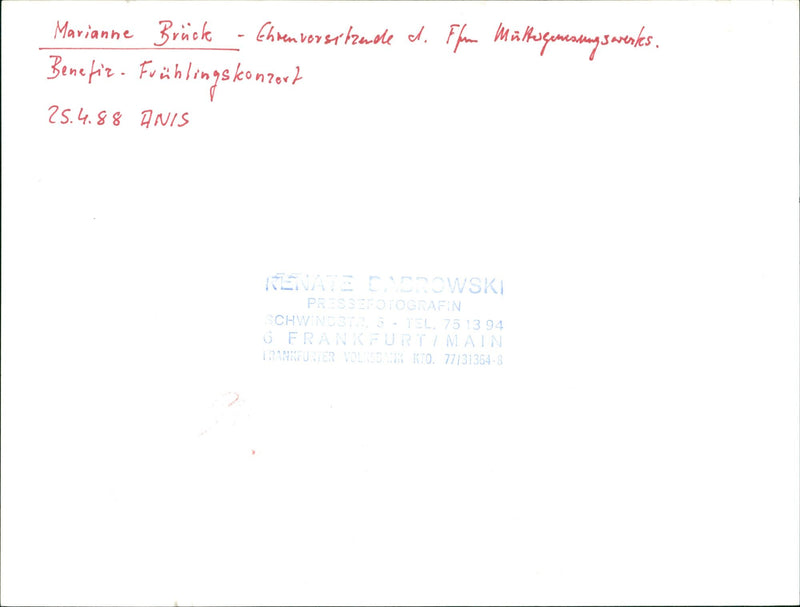 Marianne Brück - Ehrenvorsitzende d. Ffm Müttergenesungswerks.
Benefiz - Frühlingskonzert
25.4.88 ANIS
RENATE DABROWSKI
PRESSEFOTOGRAFIN
SCHWINDSTR. 8 - TEL. 75 13 94
6 FRANKFURT/MAIN
FRANKFURTER VOLKSBANK KTO. 77131364-8